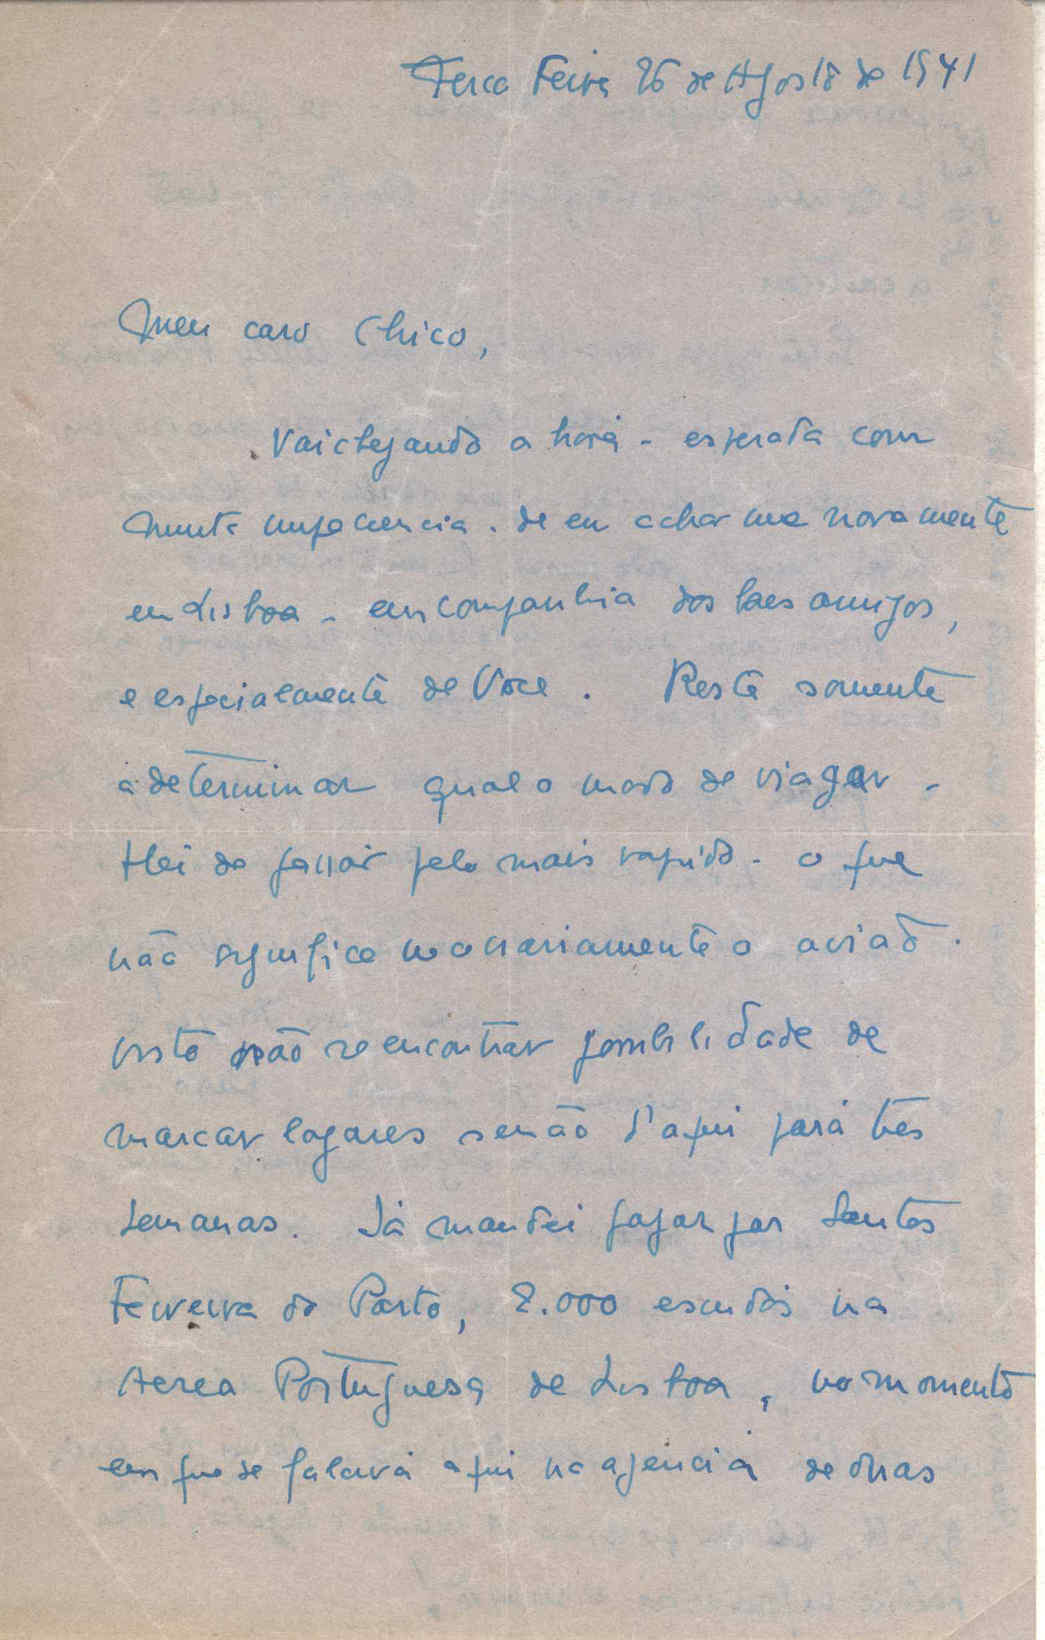 Terca Feira 26 de Agosto de 1941
Meu caro Chico,
Vai chegando a hora - esperada com
muita impaciencia - de eu achar me novamente
em Lisboa - em companhia dos taes amigos,
e especialmente de Voce. Resta somente
a determinar qual o modo de viagar -
Hei de passar pelo mais rapido - o que
não significa necessariamente o avião -
visto não se encontrar possibilidade de
marcar logares senão d'aqui para três
semanas. Já mandei pagar por Santos
Ferreira do Porto, 2.000 escudos na
Aerea Portuguesa de Lisboa, no momento
em que se falava aqui na agencia de